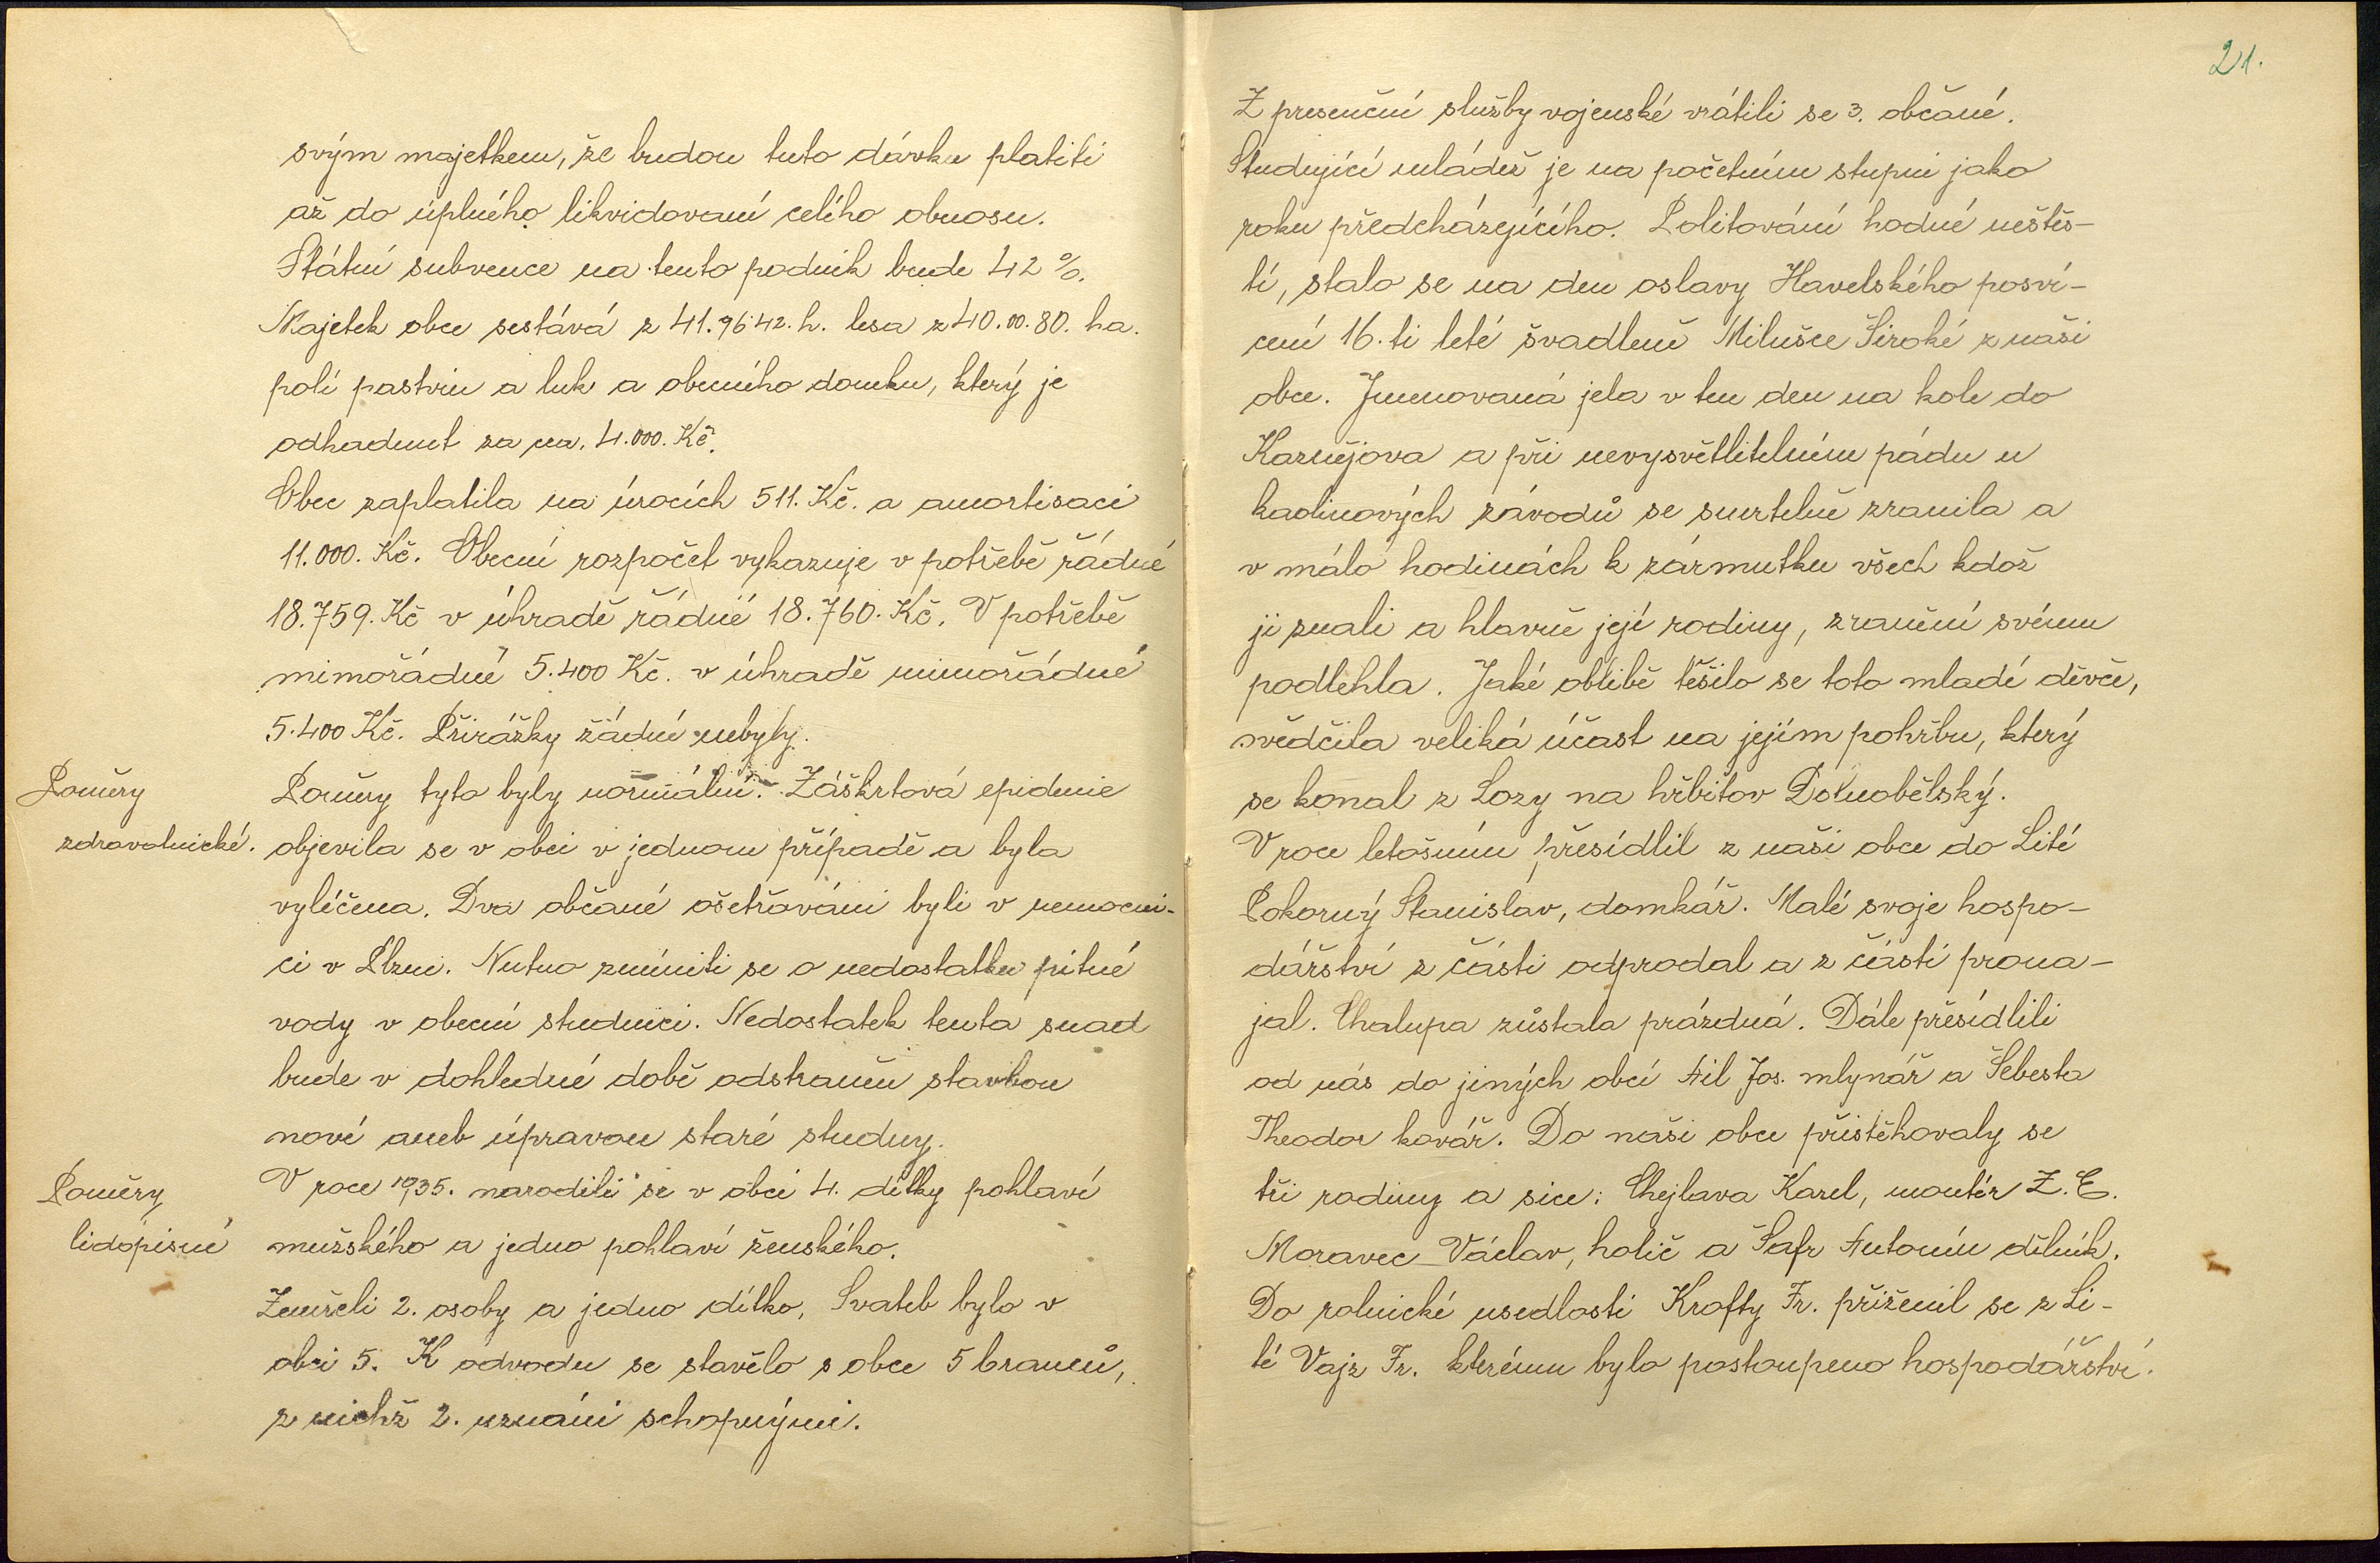 svým majetkem, že budou tuto dávku platiti
až do úplného likvidovaní celého obnosu.
Státní subvence na tento podnik bude 42 %.
Majetek obce sestává z 41.96.42. h. lesa z 40.00.80. ha.
polí pastvin a luk a obecního domku, který je
odhadnut za na. 4.000. Kč.
Obec zaplatila na úrocích 511. Kč. a amortisaci
11.000. Kč. Obecní rozpočet vykazuje v potřebě řádné
18.759. Kč v úhradě řádné 18.760. Kč. V potřebě
mimořádné 5.400 Kč. v úhradě mimořádné
5.400 Kč. Přirážky žádné nebyly.
Poměry
zdravotnické.
Poměry tyto byly normální. Záškrtová epidemie
objevila se v obci v jednom případě a byla
vyléčena. Dva občané ošetřováni byli v nemocni-
ci v Plzni. Nutno zmíniti se o nedostatku pitné
vody v obecní studnici. Nedostatek tento snad
bude v dohledné době odstraněn stavbou
nové aneb úpravou staré studny.
Poměry
lidopisné
V roce 1935. narodili se v obci 4. dítky pohlaví
mužského a jedno pohlaví ženského.
Zemřeli 2. osoby a jedno dítko. Svateb bylo v
obci 5. K odvodu se stavělo s obce 5 branců,
z nichž 2. uznáni schopnými.
21.
Z presenční služby vojenské vrátili se 3. občané.
Studující mládež je na početním stupni jako
roku předcházejícího. Politování hodné neštěs-
tí, stalo se na den oslavy Havelského posví-
cení 16. ti leté švadleně Milušce Široké z naši
obce. Jmenovaná jela v ten den na kole do
Kaznějova a při nevysvětlitelném pádu u
kaolinových závodů se smrtelně zranila a
v málo hodinách k zármutku všech kdož
ji znali a hlavně její rodiny, zranění svému
podlehla. Jaké oblibě těšilo se toto mladé děvče,
svědčila veliká účast na jejím pohřbu, který
se konal z Lozy na hřbitov Dolnobělský.
V roce letošním přesídlil z naši obce do Lité
Pokorný Stanislav, domkář. Malé svoje hospo-
dářství z části odprodal a z části prona-
jal. Chalupa zůstala prázdná. Dále přesídlili
od nás do jiných obcí Ail Jos. mlynář a Šebesta
Theodor kovář. Do naši obce přistěhovaly se
tři rodiny a sice: Chejlava Karel, montér Z. E.
Moravec Václav, holič a Šafr Antonín dělník.
Do rolnické usedlosti Krofty Fr. přiženil se z Li-
té Vajz Fr. kterému bylo postoupeno hospodářství.